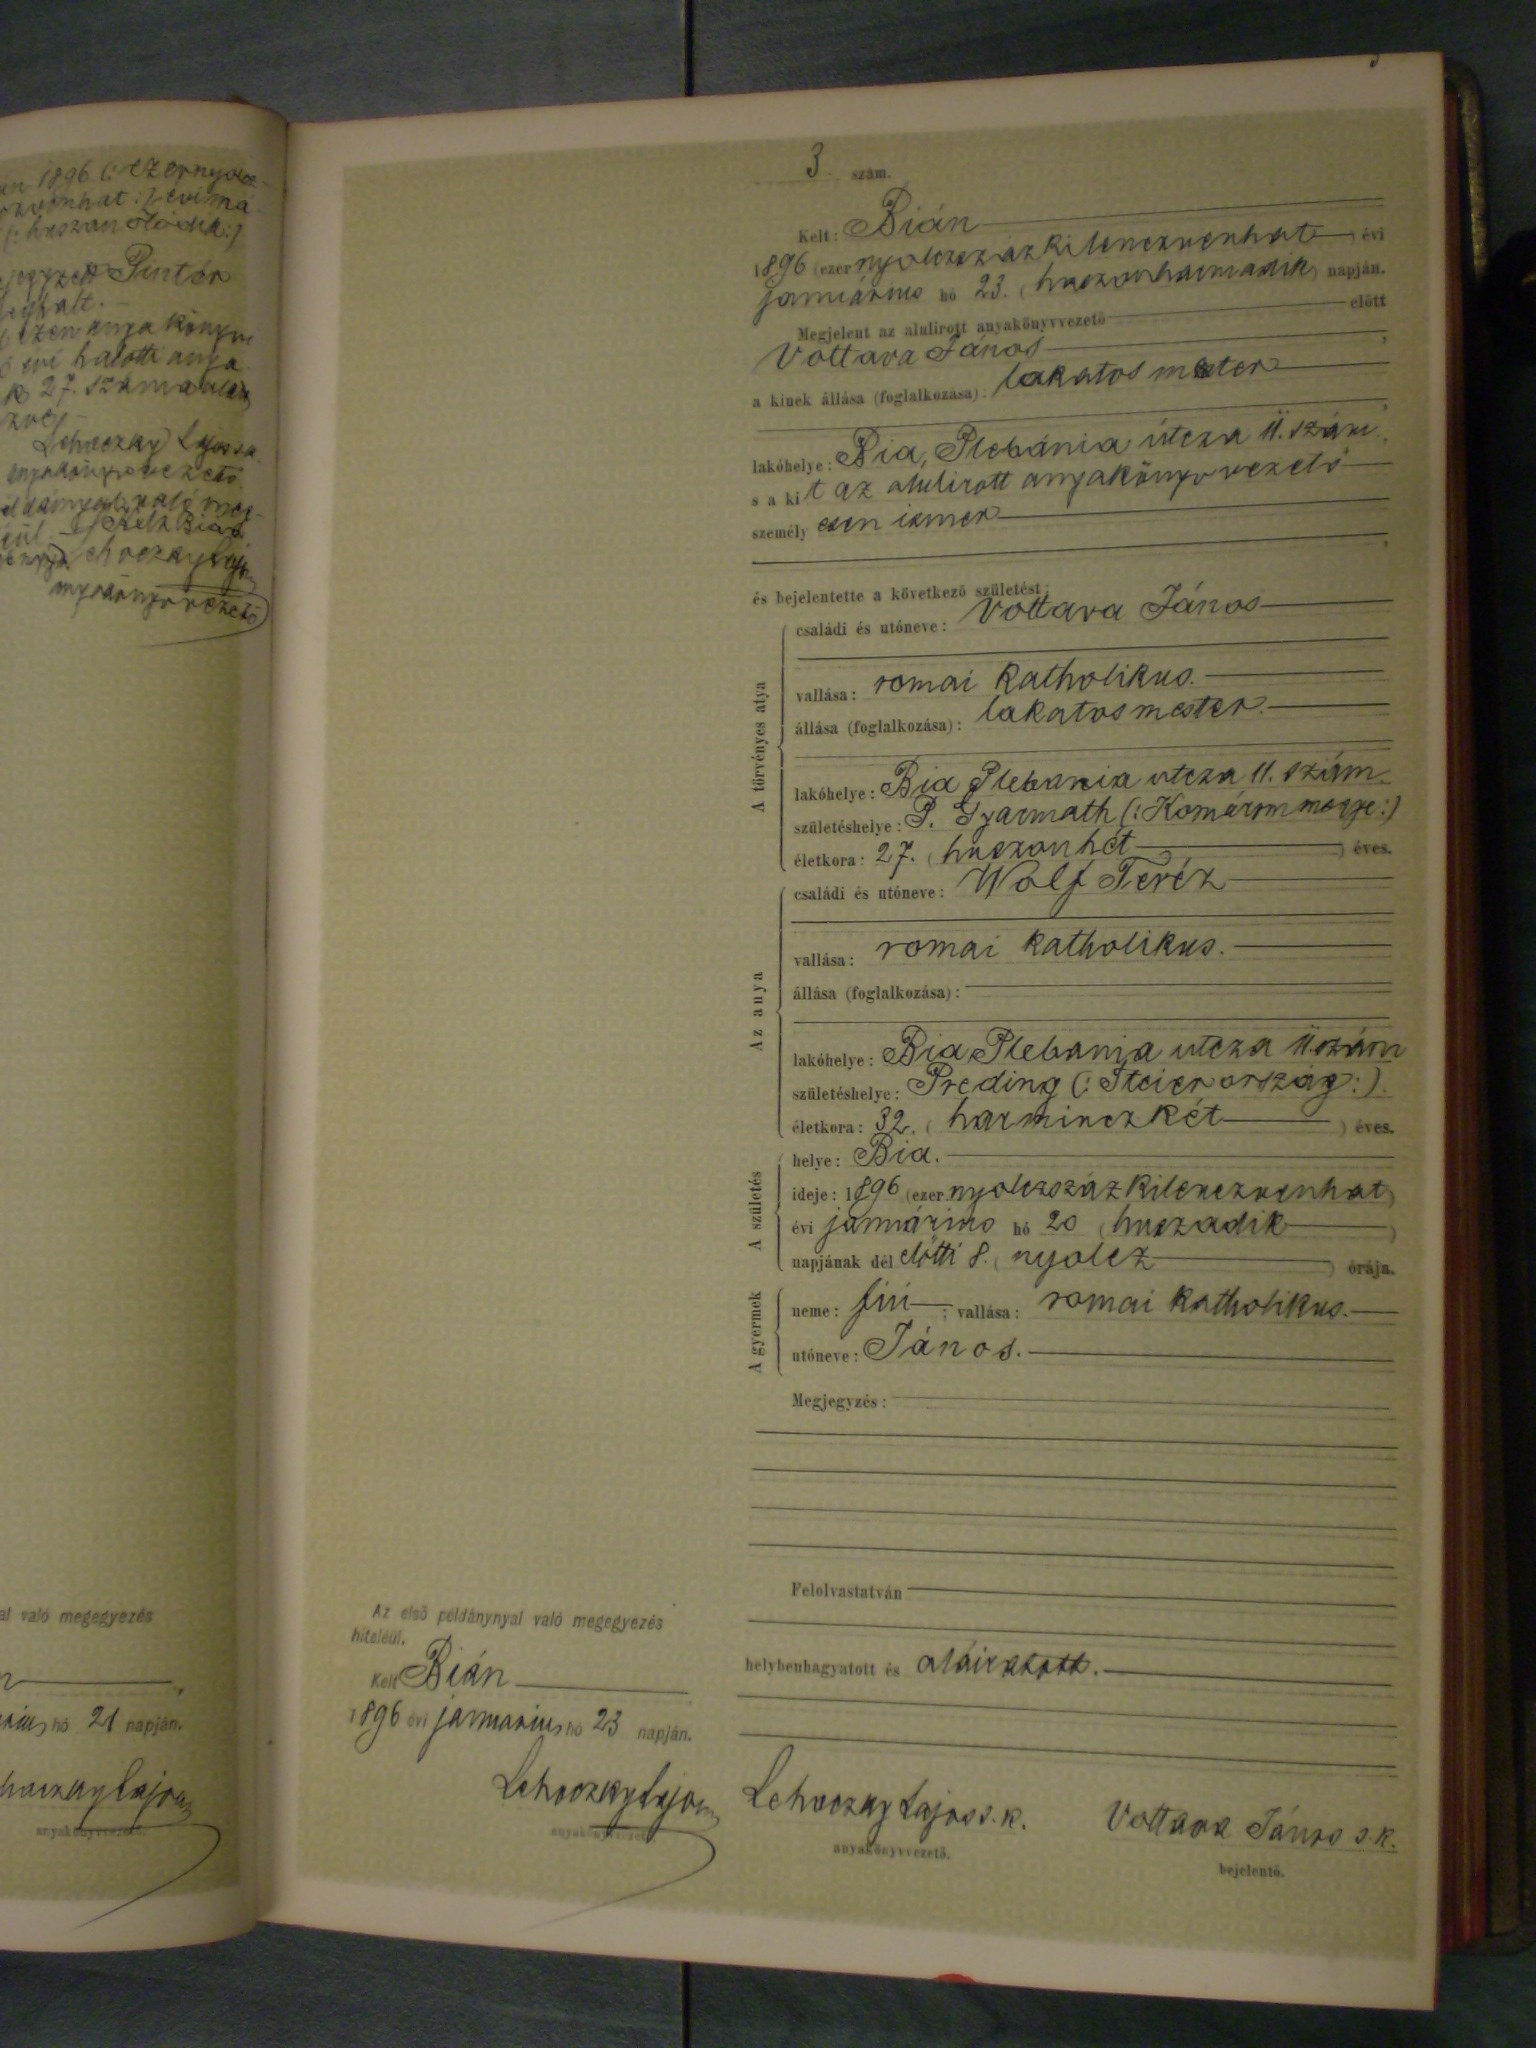 1896 (: ezernyolcz-
(: huszan ötödik :)
jegyzett Pintér
meghalt.
ezen anyakönyvi
évi halotti anya-
k 27. száma alatt
Lehoczky Lajos s.k.
anyakönyvvezető.
való meg-
Kelt Bián
Lehoczky Lajos
anyakönyvvezető
al való megegyezés
hó 21 napján.
Lehoczky Lajos
anyakönyvvezető.
3. szám.
Kelt: Bián
1896 (ezer nyolczszázkilenczvenhat) évi
januárius hó 23. (huszonharmadik) napján.
Megjelent az alulirott anyakönyvvezető előtt
Vottava János,
a kinek állása (foglalkozása): lakatos mester
lakóhelye: Bia, Plebánia útcza 11. szám.,
s a kit az alulirott anyakönyvvezető
személyesen ismer
és bejelentette a következő születést:
A törvényes atya
családi és utóneve: Vottava János
vallása: romai katholikus.
állása (foglalkozása): lakatos mester.
lakóhelye: Bia Plebania utcza 11. szám.
születéshelye: P. Gyarmath (: Komárom megye :)
életkora: 27. (huszonhét) éves.
Az anya
családi és utóneve: Wolf Teréz
vallása: romai katholikus.
állása (foglalkozása):
lakóhelye: Bia, Plebania utcza 11. szám
születéshelye: Preding (: Steierország :).
életkora: 32. (harminczkét) éves.
A születés
helye: Bia.
ideje: 1896 (ezer nyolczszázkilenczvenhat)
évi januárius hó 20 (huszadik)
napjának dél előtti 8. (nyolcz) órája.
A gyermek
neme: fiú; vallása: romai katholikus.
utóneve: János.
Megjegyzés:
Felolvastatván
helybenhagyatott és aláiratott.
Az első példánynyal való megegyezés
hiteléül.
Kelt Bián
1896 évi januarius hó 23 napján.
Lehoczky Lajos
anyakönyvvezető
Lehoczky Lajos s. k.
anyakönyvvezető.
Vottava János s. k.
bejelentő.